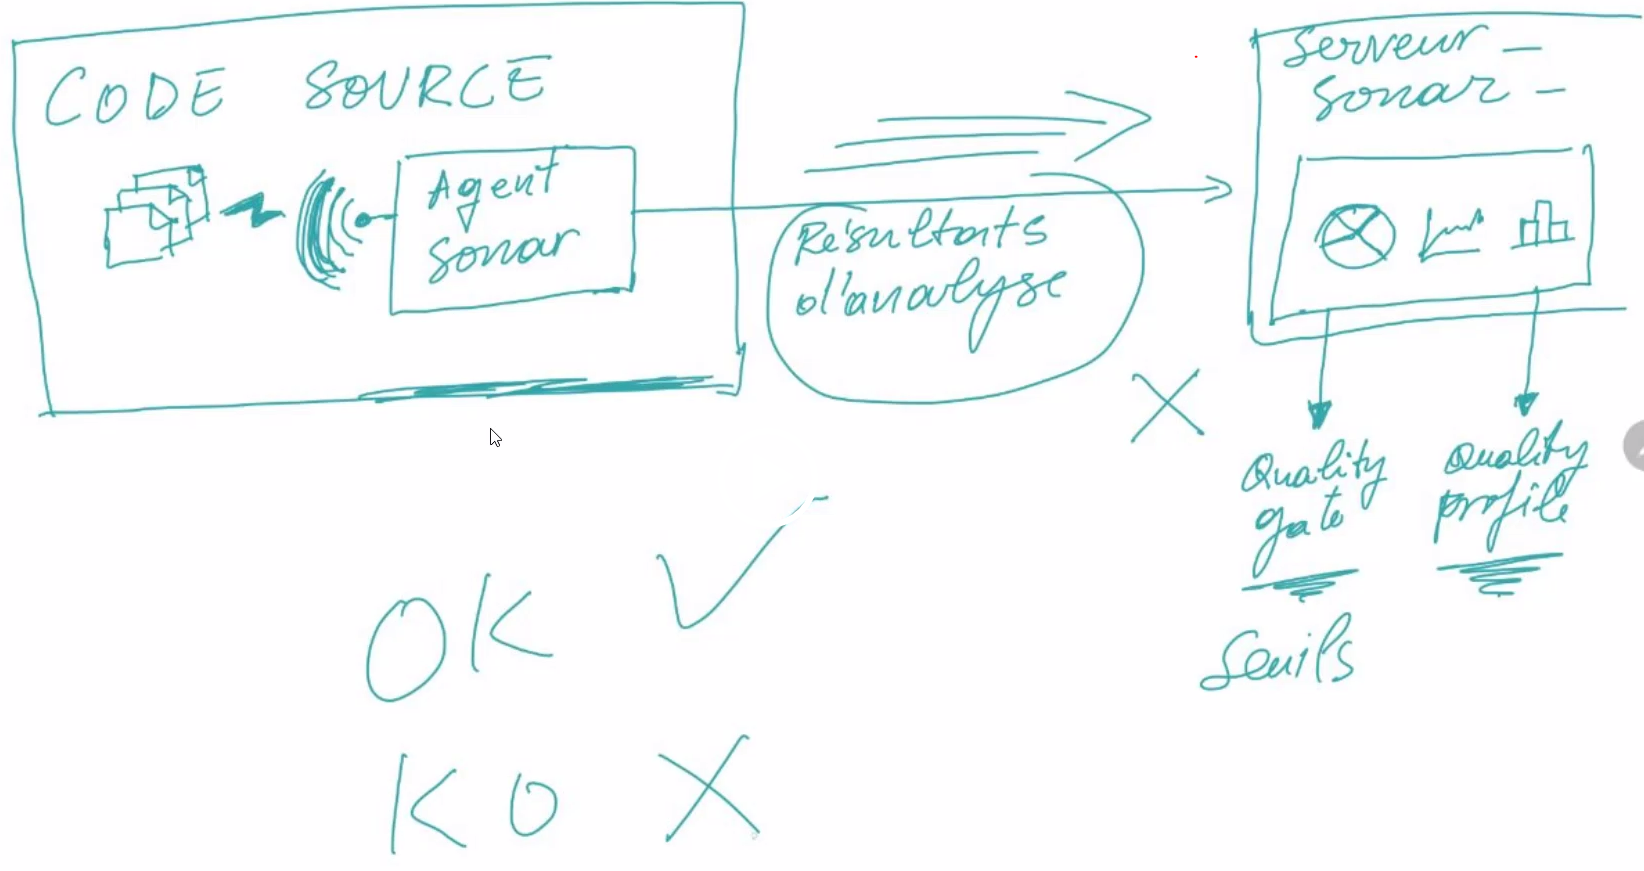 CODE SOURCE
Agent
sonar
Résultats
d'analyse
Serveur
sonar
Quality
gate
Quality
profile
Seuils
OK
KO